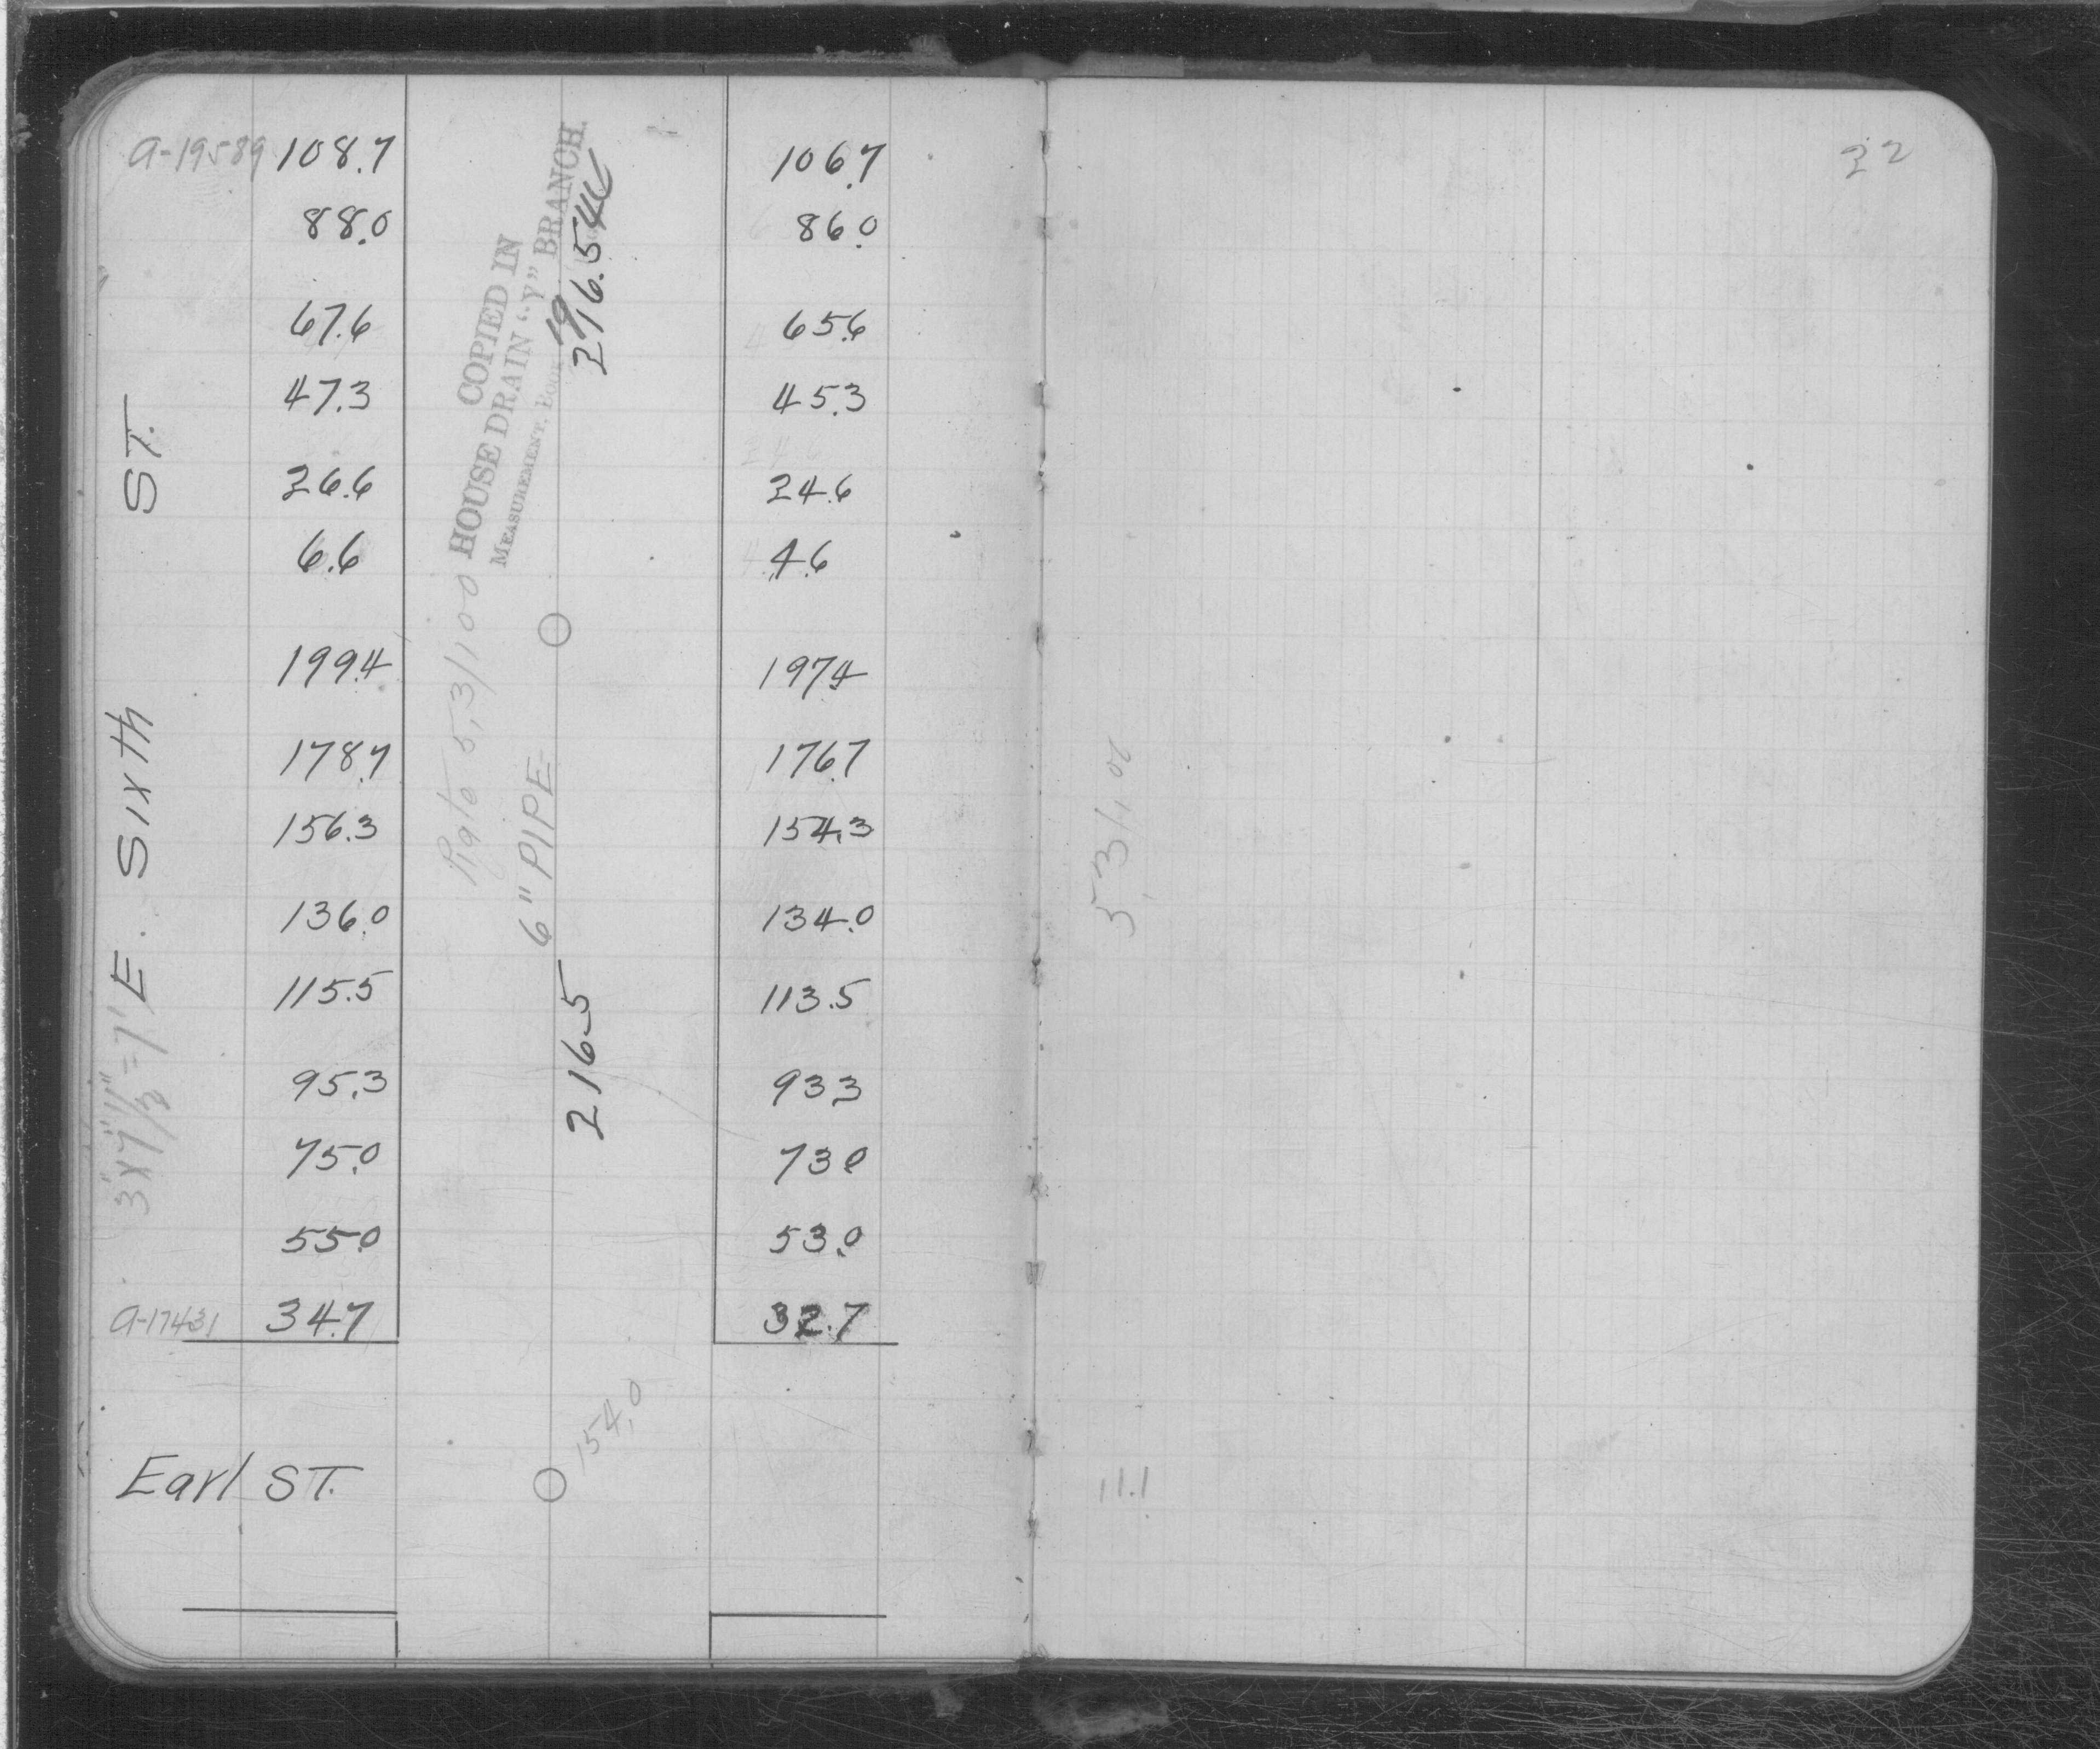 a-19589 108.7 106.7
88.0 86.0
67.6 65.6
47.3 45.3
26.6 24.6
6.6 4.6
199.4 197.4
178.7 176.7
156.3 154.3
136.0 134.0
115.5 113.5
95.3 93.3
75.0 73.0
55.0 53.0
a-17431 34.7 32.7
Earl ST.
E. Sixth ST.
COPIED IN
HOUSE DRAIN "Y" BRANCH.
MEASUREMENT. BOOK 19
216.5
6" PIPE
216.5
154.0
22
5.3/100
11.1